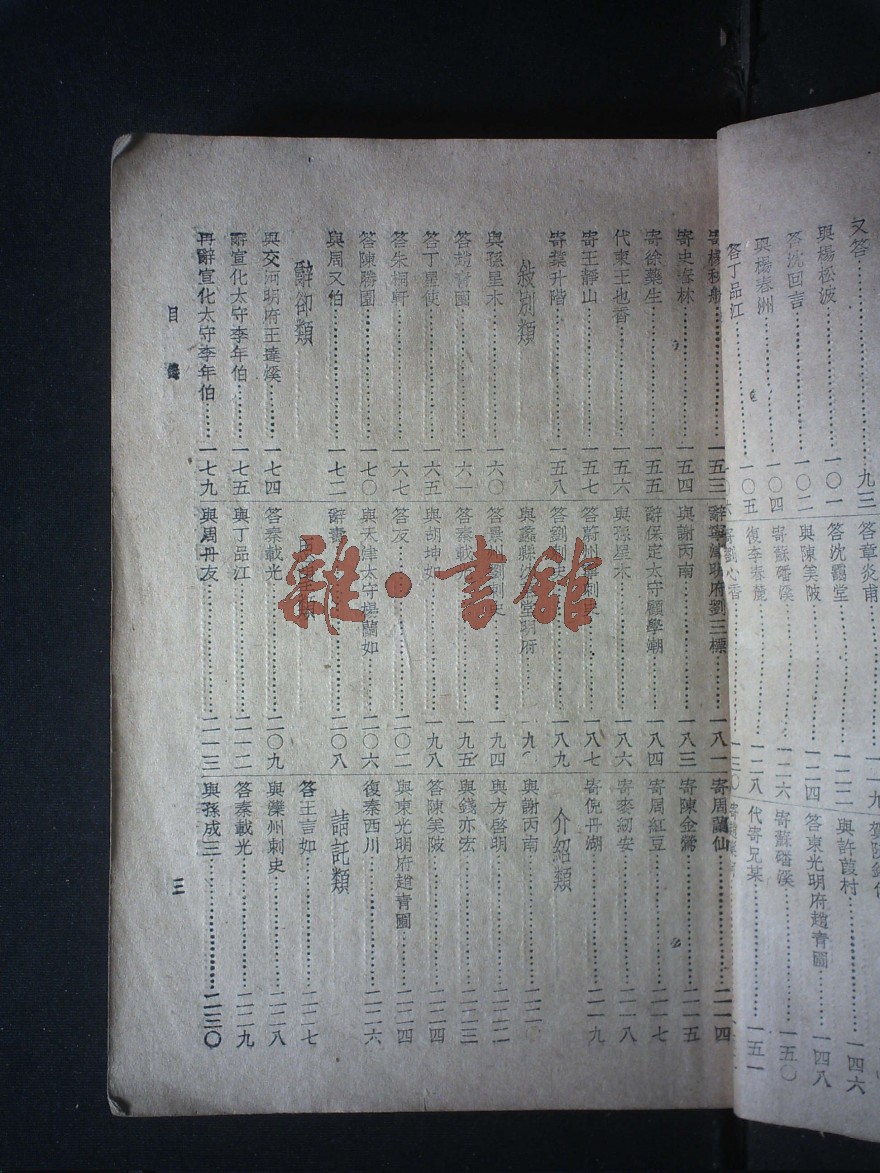 又答……九三
與楊松波……一〇一
答沈回言……一〇二
與楊春洲……一〇四
答丁品江……一〇五
答章炎甫……一一九
答沈靄堂……一二二
與陳笑陂……一二四
寄蘇磻溪……一二六
復李春麓……一二八
與許葭村……一四六
答東光明府趙青圃……一四八
寄蘇磻溪……一五〇
代寄兄某……一五一
寄史春林……一五四
寄徐藥生……一五五
代柬王也香……一五六
寄王靜山……一五七
寄龔升階……一五八
敍別類
與孫星木……一六〇
答趙青圃……一六一
答丁星使……一六五
答朱桐軒……一六七
答陳勝園……一七〇
與周又伯……一七二
辭卻類
與交河明府王蓬溪……一七四
辭宣化太守李年伯……一七五
再辭宣化太守李年伯……一七九
與謝丙南……一八三
辭保定太守顧學潮……一八四
與孫星木……一八六
一八七
一八九
一九四
答秦載……一九五
與胡坤如……一九八
答友……二〇二
與天津太守楊蘭如……二〇六
二〇八
答秦載光……二〇九
與丁品江……二一二
與周丹友……二一三
寄周蘭仙……二一四
寄陳金蘭……二一五
寄周紅豆……二一七
寄麥紉安……二一八
寄倪丹湖……二一九
介紹類
與謝丙南……二二一
與方啓明……二二二
與錢亦宏……二二三
答陳笑陂……二二四
與東光明府趙青圃……二二四
復秦西川……二二六
請託類
答王言如……二二七
與灤州刺史……二二八
答秦載光……二二九
與孫成三……二三〇
目錄
三
雜·書館